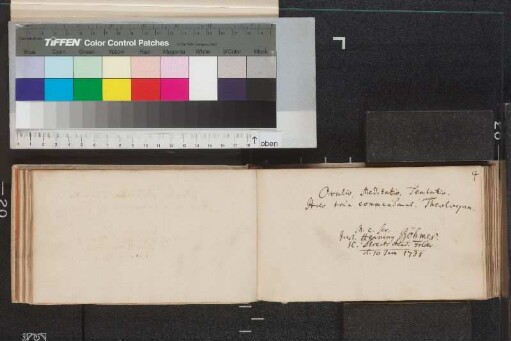 TIFFEN Color Control Patches
Blue Cyan Green Yellow Red Magenta White 3/Color Black
oben
20
20
4
Oratio, Meditatio, Tentatio.
Haec tria commendant Theologum.
Just. Henning Böhmer.
d. 10 Jun 1738